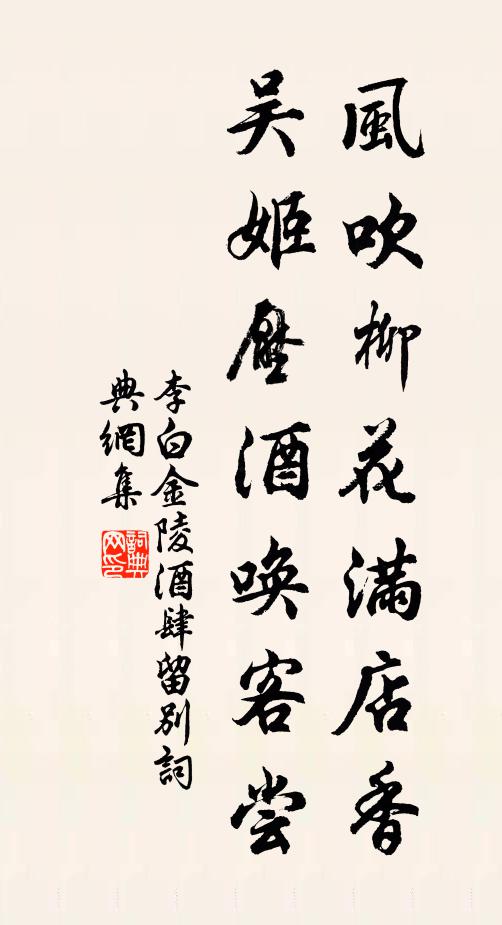 風吹柳花滿店香
吴姬壓酒唤客尝
李白金陵酒肆留别詞
典網集
詞典
网印